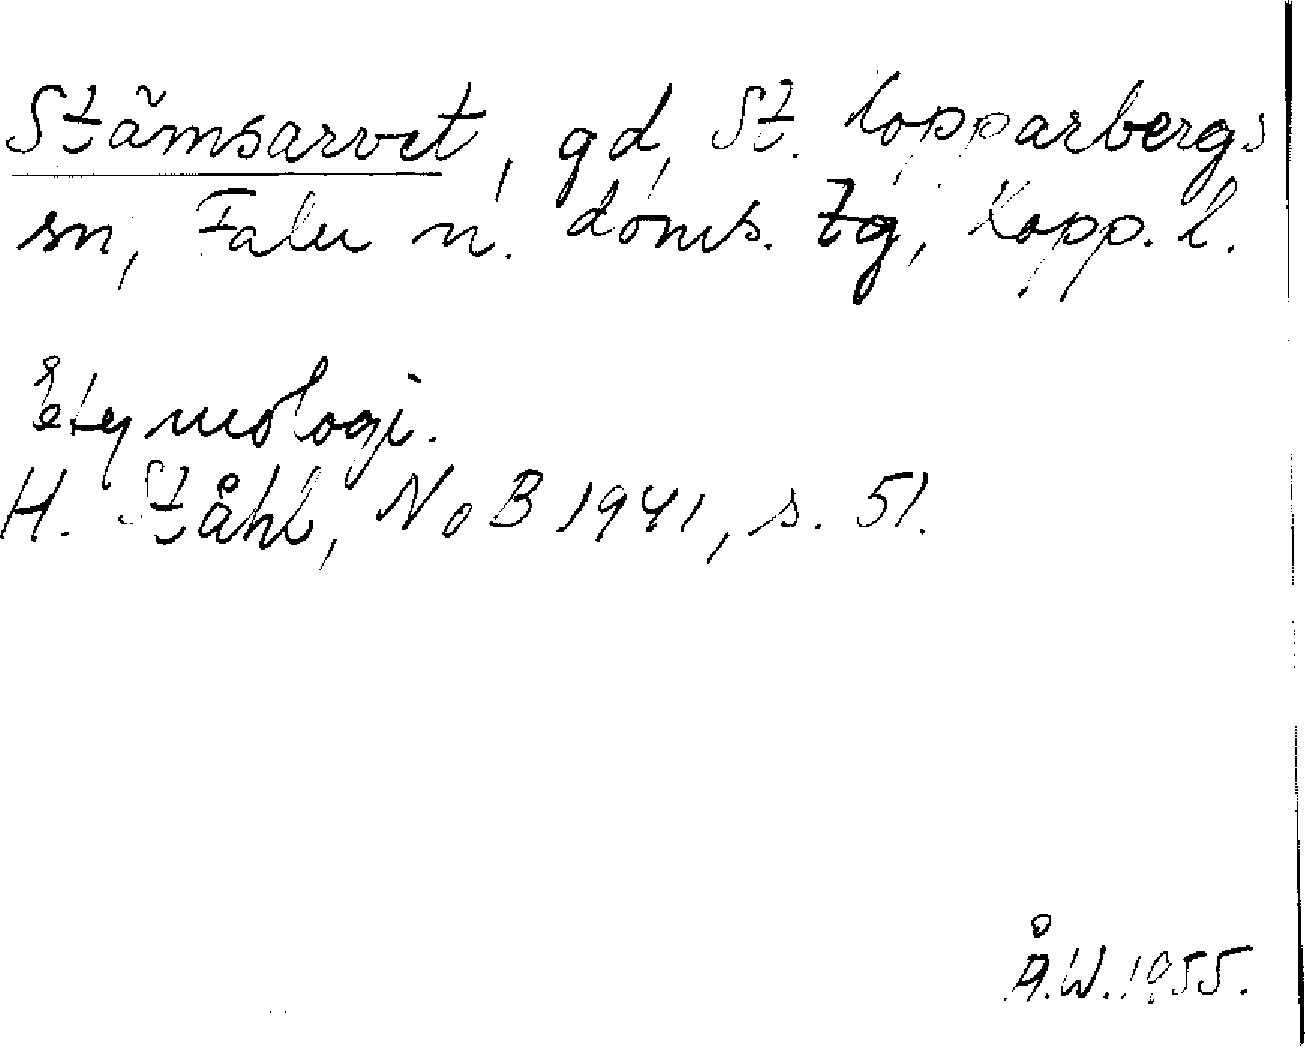 Stämsarvet, gd, St. Kopparbergs
sn, Falu n. doms. tg, Kopp. l.
Etymologi.
H. Ståhl, NoB 1941, s. 51.
Å.W. 1955.